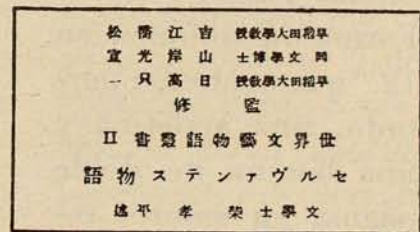 早稻田大學教授 吉江喬松
文學博士 山岸光宣
早稻田大學教授 日高只一
監修
世界文藝物語叢書 II
セルヴァンテス物語
文學士 榮孝平 述